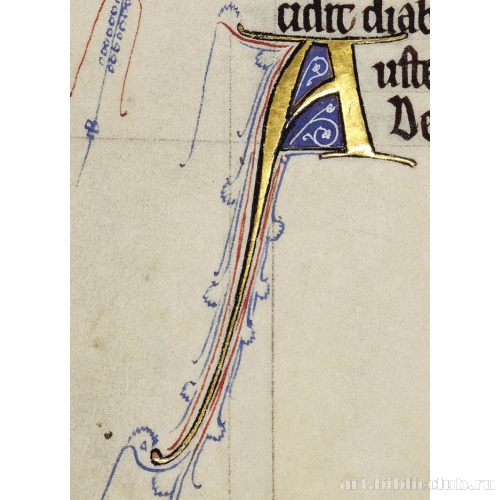 cidit diab
A uste
De
art.biblioclub.ru